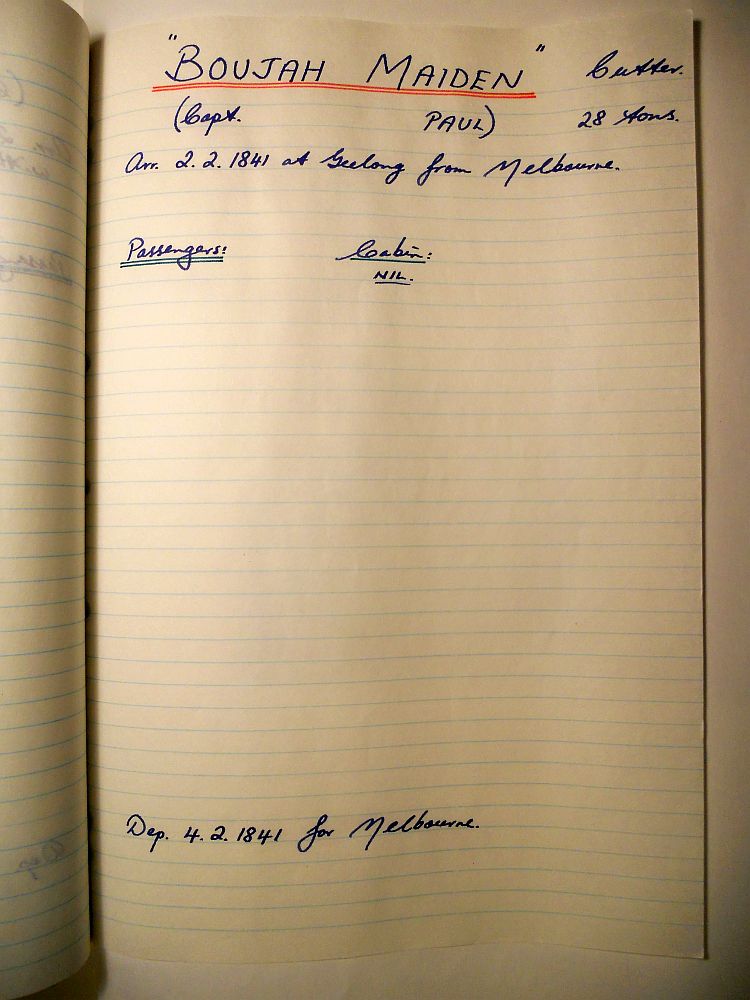 "BOUJAH MAIDEN" Cutter.
(Capt. PAUL) 28 tons.
Arr. 2.2.1841 at Geelong from Melbourne.
Passengers: Cabin:
NIL.
Dep. 4.2.1841 for Melbourne.